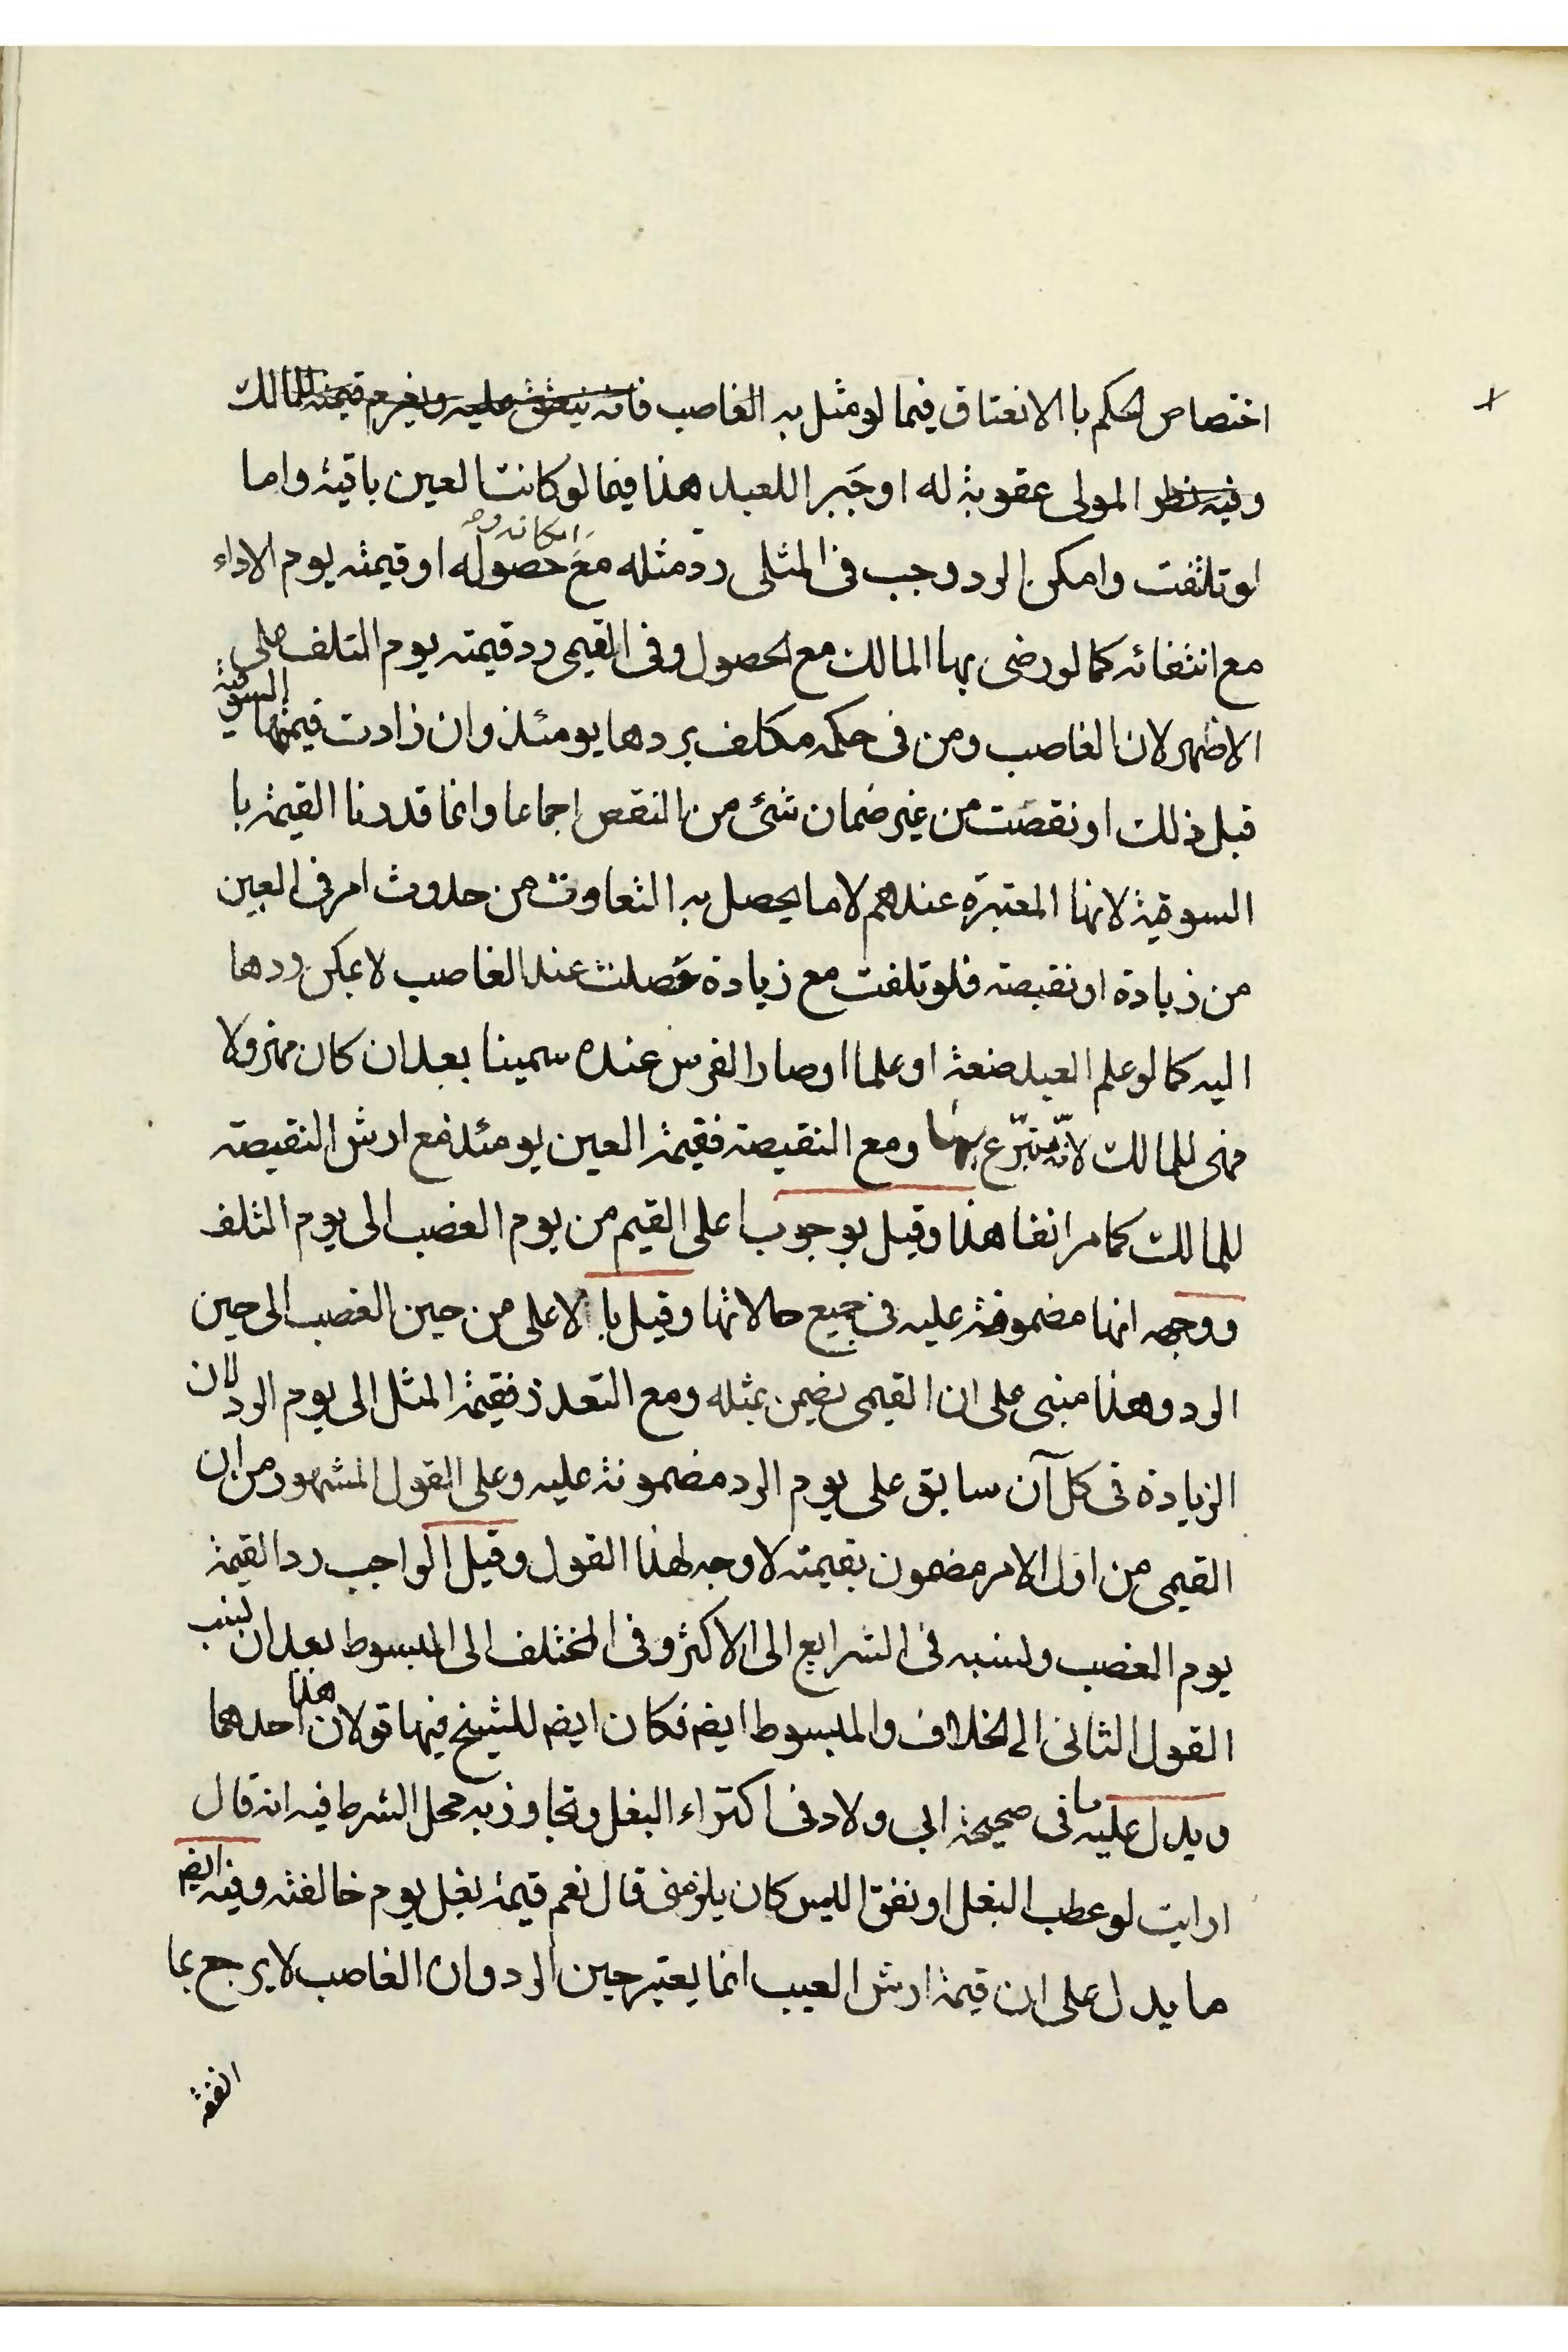 اختصاص الحكم با الانعتاق فيما لو مثل به الغاصب فانه ينعتق عليه ويغرم قيمته للمالك
وفيه نظر المولى عقوبة له او جبرا للعبد هذا فيما لو كانت العين باقية واما
لو تلفت وامكن الرد وجب فى المثلى رد مثله مع حصوله امكانه او قيمته يوم الاداء
مع انتفائه كما لو رضى بها المالك مع الحصول وفى القيمى رد قيمته يوم التلف على
الاظهر لان الغاصب ومن فى حكمه مكلف بردها يومئذ وان زادت قيمتها السوقية
قبل ذلك او نقصت من غير ضمان شئ من النقص اجماعا وانما قددنا القيمة با
السوقية لانها المعتبرة عندهم لا ما يحصل به التفاوت من حدوث امر فى العين
من زيادة او نقيصة فلو تلفت مع زيادة حصلت عند الغاصب لا يمكن ردها
اليه كما لو علم العبد صنعة او علما او صار الفرس عنده سمينا بعد ان كان مهزولا
فهى للمالك لانه متبرّع بها ومع النقيصة فقيمة العين يومئذ مع ارش النقيصة
للمالك كما مر انفا هذا وقيل بوجوب اعلى القيم من يوم الغصب الى يوم التلف
ووجهه انها مضمونة عليه فى جميع حالاتها وقيل با الاعلى من حين الغصب الى حين
الرد وهذا مبنى على ان القيمى يضمن بمثله ومع التعذر فقيمة المثل الى يوم الرد لان
الزيادة فى كل آن سابق على يوم الرد مضمونة عليه وعلى القول المشهور من ان
القيمى من اول الامر مضمون بقيمته لا وجه لهذا القول وقيل الواجب رد القيمة
يوم الغصب ونسبه فى الشرايع الى الاكثر وفى المختلف الى المبسوط بعد ان نسب
القول الثانى الى الخلاف والمبسوط ايضم فكان ايضم للشيخ فيها قولان هذا احدهما
ويدل عليه ما فى صحيحة ابى ولاد فى اكتراء البغل وتجاوز به محل الشرط فيه انه قال
ارايت لو عطب البغل او نفق اليس كان يلزمنى قال نعم قيمة بغل يوم خالفته وفيه ايضم
ما يدل على ان قيمة ارش العيب انما يعتبر حين الرد وان الغاصب لا يرجع بما
انفقه